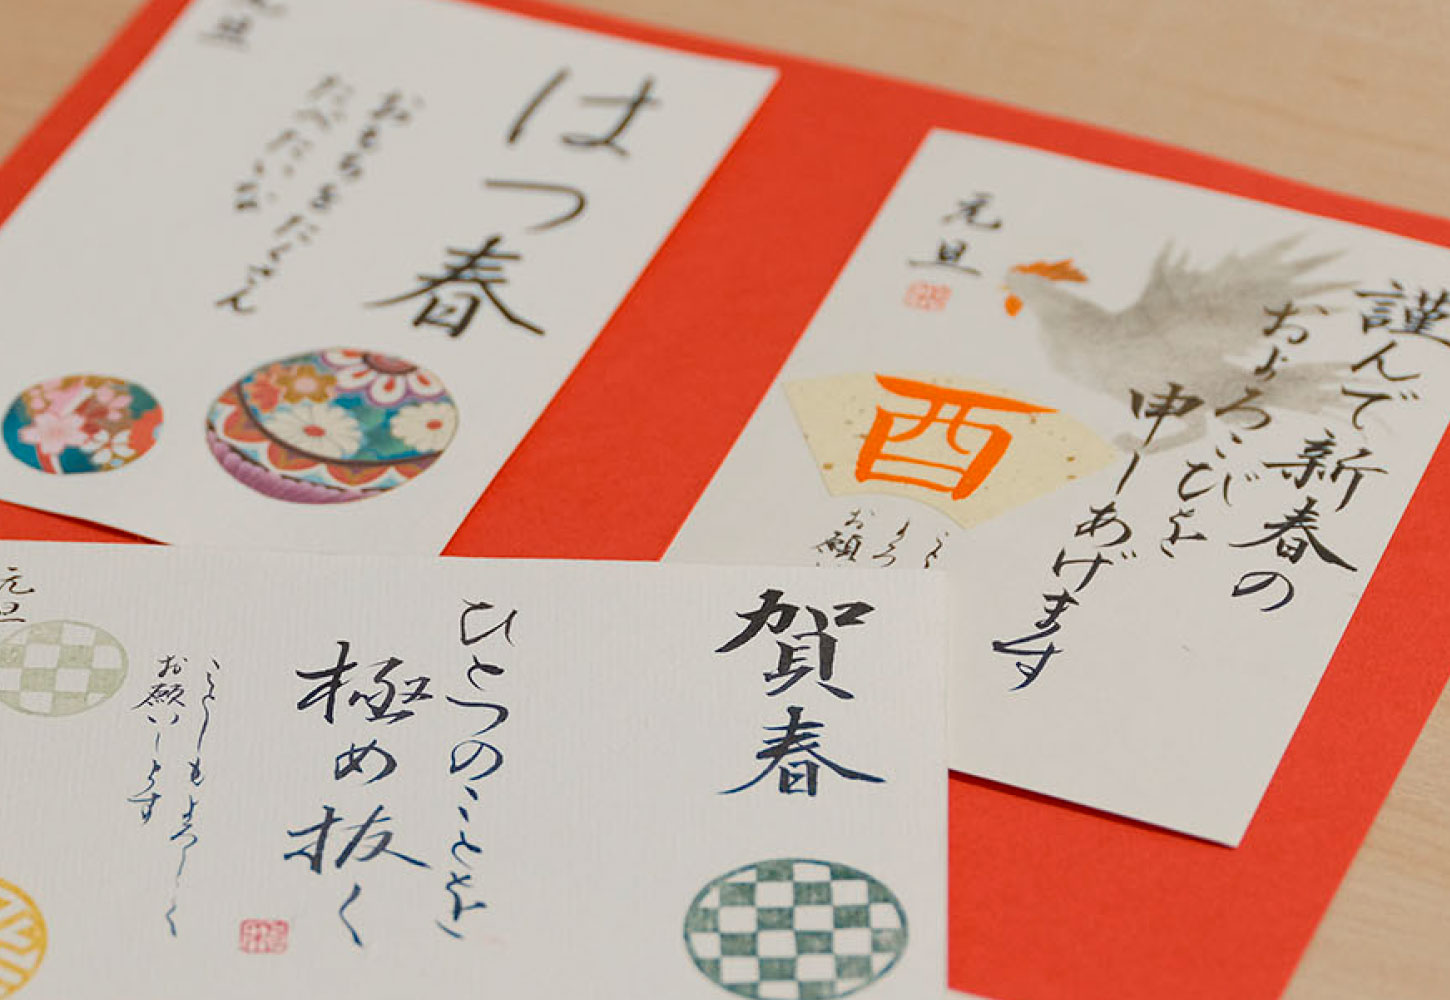 はつ春
おもちをたくさん
たべたいな
元旦
謹んで新春の
およろこびを
申しあげます
元旦
酉
ことし
よろ
お願
賀春
ひとつのことを
極め抜く
ことしもよろしく
お願いします
元旦